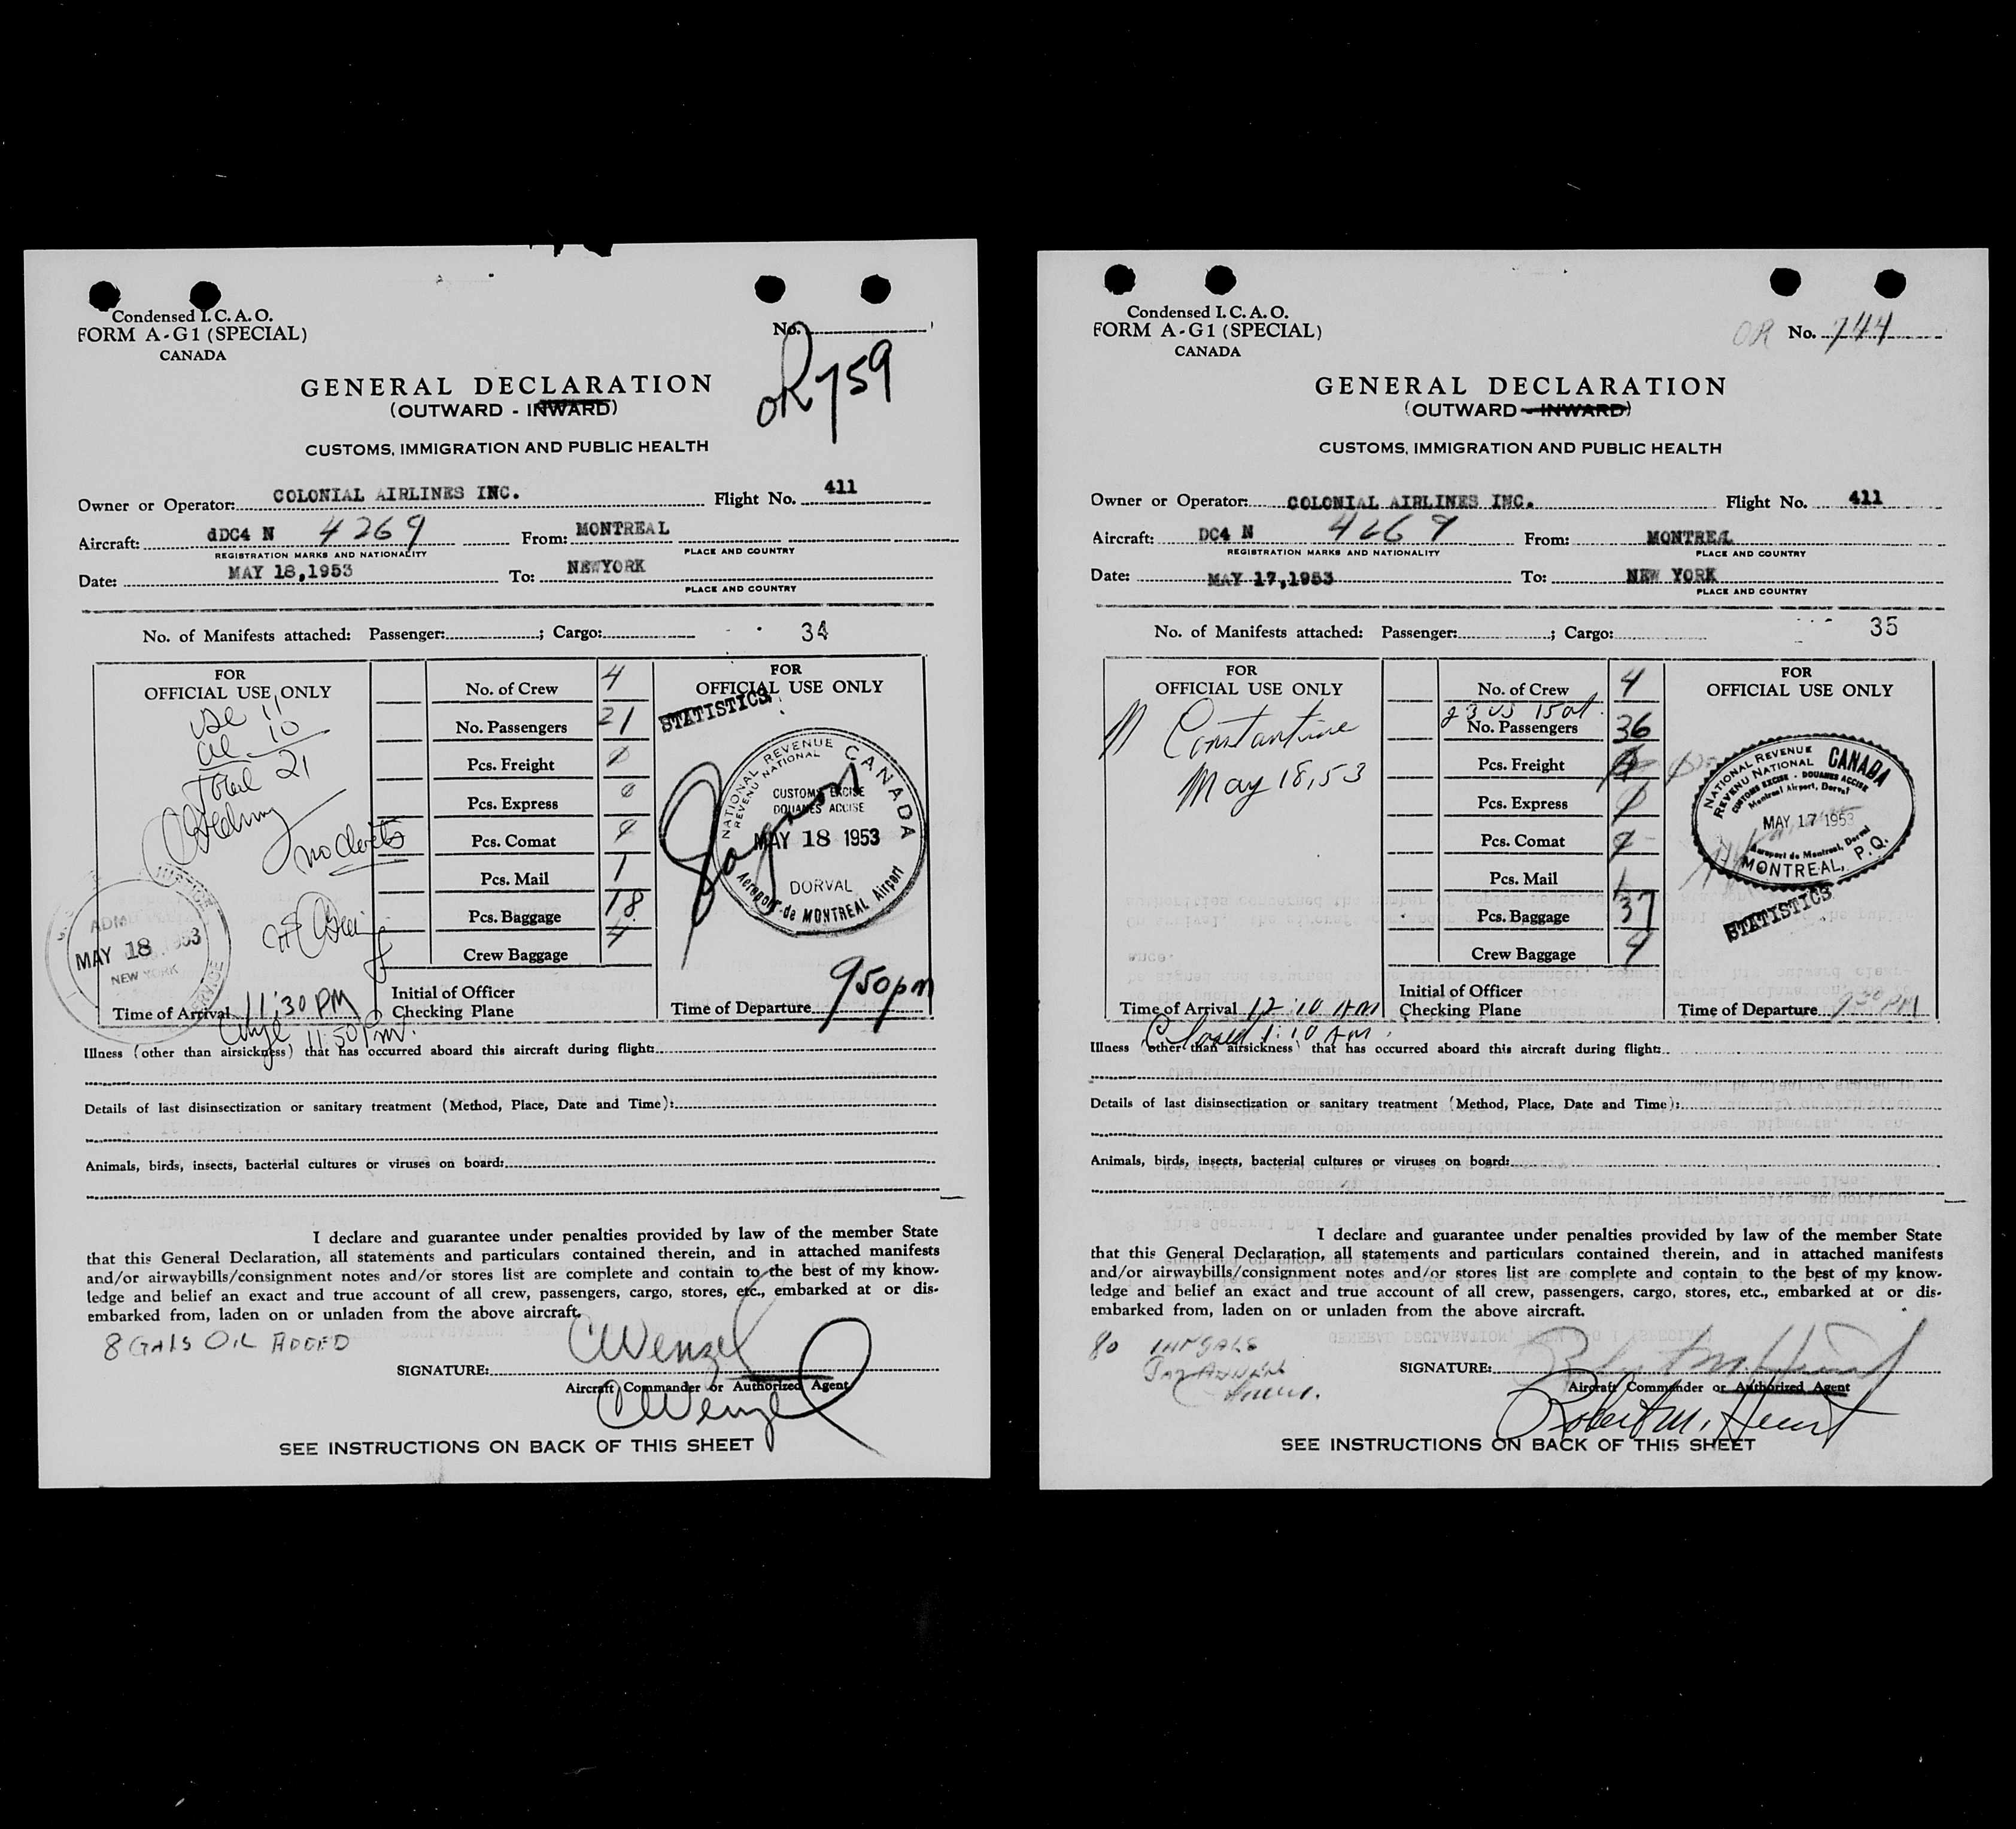 Condensed I.C.A.O.
FORM A-G1 (SPECIAL)
CANADA
No.
OR 759
GENERAL DECLARATION
(OUTWARD - INWARD)
CUSTOMS, IMMIGRATION AND PUBLIC HEALTH
Owner or Operator: COLONIAL AIRLINES INC. Flight No. 411
Aircraft: dDC4 N 4269 From: MONTREAL
REGISTRATION MARKS AND NATIONALITY PLACE AND COUNTRY
Date: MAY 18,1953 To: NEWYORK
PLACE AND COUNTRY
No. of Manifests attached: Passenger: ; Cargo: 34
FOR
OFFICIAL USE ONLY
usc 11
al 10
Total 21
no docts
ADM
MAY 18 1953
NEW YORK
Time of Arrival 11:30 PM
11:50 Pm.
No. of Crew 4
No. Passengers 21
Pcs. Freight 0
Pcs. Express 0
Pcs. Comat
Pcs. Mail 1
Pcs. Baggage 18
Crew Baggage 4
Initial of Officer
Checking Plane
FOR
OFFICIAL USE ONLY
STATISTICS
NATIONAL REVENUE CANADA
REVENU NATIONAL
CUSTOMS EXCISE
DOUANES ACCISE
MAY 18 1953
DORVAL
Aeroport de MONTREAL Airport
Time of Departure 950pm
Illness (other than airsickness) that has occurred aboard this aircraft during flight:
Details of last disinsectization or sanitary treatment (Method, Place, Date and Time):
Animals, birds, insects, bacterial cultures or viruses on board:
I declare and guarantee under penalties provided by law of the member State
that this General Declaration, all statements and particulars contained therein, and in attached manifests
and/or airwaybills/consignment notes and/or stores list are complete and contain to the best of my know-
ledge and belief an exact and true account of all crew, passengers, cargo, stores, etc., embarked at or dis-
embarked from, laden on or unladen from the above aircraft.
8 GALS OIL ADDED
SIGNATURE: CWenzel
Aircraft Commander or Authorized Agent
CWenzel
SEE INSTRUCTIONS ON BACK OF THIS SHEET
Condensed I.C.A.O.
FORM A-G1 (SPECIAL)
CANADA
OR No. 744
GENERAL DECLARATION
(OUTWARD - INWARD)
CUSTOMS, IMMIGRATION AND PUBLIC HEALTH
Owner or Operator: COLONIAL AIRLINES INC. Flight No. 411
Aircraft: DC4 N From: MONTREAL
REGISTRATION MARKS AND NATIONALITY PLACE AND COUNTRY
Date: MAY 17,1953 To: NEW YORK
PLACE AND COUNTRY
No. of Manifests attached: Passenger: ; Cargo: 35
FOR
OFFICIAL USE ONLY
M Constantine
May 18, 53
Time of Arrival 12:10 AM
Closed 1:10 Am.
No. of Crew 4
23 US 15 al.
No. Passengers 36
Pcs. Freight
Pcs. Express
Pcs. Comat
Pcs. Mail 1
Pcs. Baggage 37
Crew Baggage 4
Initial of Officer
Checking Plane
FOR
OFFICIAL USE ONLY
NATIONAL REVENUE CANADA
REVENU NATIONAL
CUSTOMS EXCISE - DOUANES ACCISE
Montreal Airport, Dorval
MAY 17 1953
Aeroport de Montreal, Dorval
MONTREAL, P.Q.
STATISTICS
Time of Departure 930 PM
Illness (other than airsickness) that has occurred aboard this aircraft during flight:
Details of last disinsectization or sanitary treatment (Method, Place, Date and Time):
Animals, birds, insects, bacterial cultures or viruses on board:
I declare and guarantee under penalties provided by law of the member State
that this General Declaration, all statements and particulars contained therein, and in attached manifests
and/or airwaybills/consignment notes and/or stores list are complete and contain to the best of my know-
ledge and belief an exact and true account of all crew, passengers, cargo, stores, etc., embarked at or dis-
embarked from, laden on or unladen from the above aircraft.
80
SIGNATURE:
Aircraft Commander or Authorized Agent
Robert M.
SEE INSTRUCTIONS ON BACK OF THIS SHEET